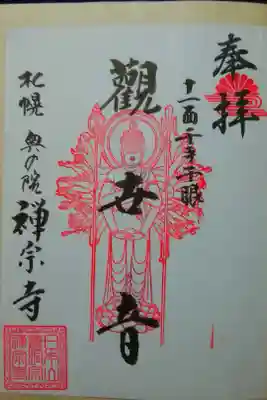 奉拝
十一面千手千眼
觀世音
札幌 奥の院 禅宗寺